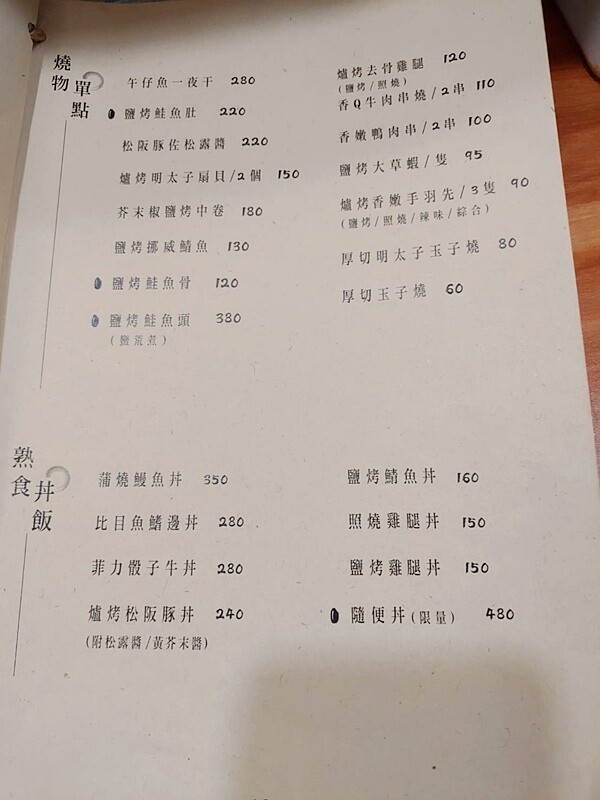 燒物 單點
午仔魚一夜干 280
鹽烤鮭魚肚 220
松阪豚佐松露醬 220
爐烤明太子扇貝/2個 150
芥末椒鹽烤中卷 180
鹽烤挪威鯖魚 130
鹽烤鮭魚骨 120
鹽烤鮭魚頭 380
(鹽/煮)
爐烤去骨雞腿 120
(鹽烤/照燒)
香Q牛肉串燒/2串 110
香嫩鴨肉串/2串 100
鹽烤大草蝦/隻 95
爐烤香嫩手羽先/3隻 90
(鹽烤/照燒/辣味/綜合)
厚切明太子玉子燒 80
厚切玉子燒 60
熟食 丼飯
蒲燒鰻魚丼 350
比目魚鰭邊丼 280
菲力骰子牛丼 280
爐烤松阪豚丼 240
(附松露醬/黃芥末醬)
鹽烤鯖魚丼 160
照燒雞腿丼 150
鹽烤雞腿丼 150
隨便丼(限量) 480